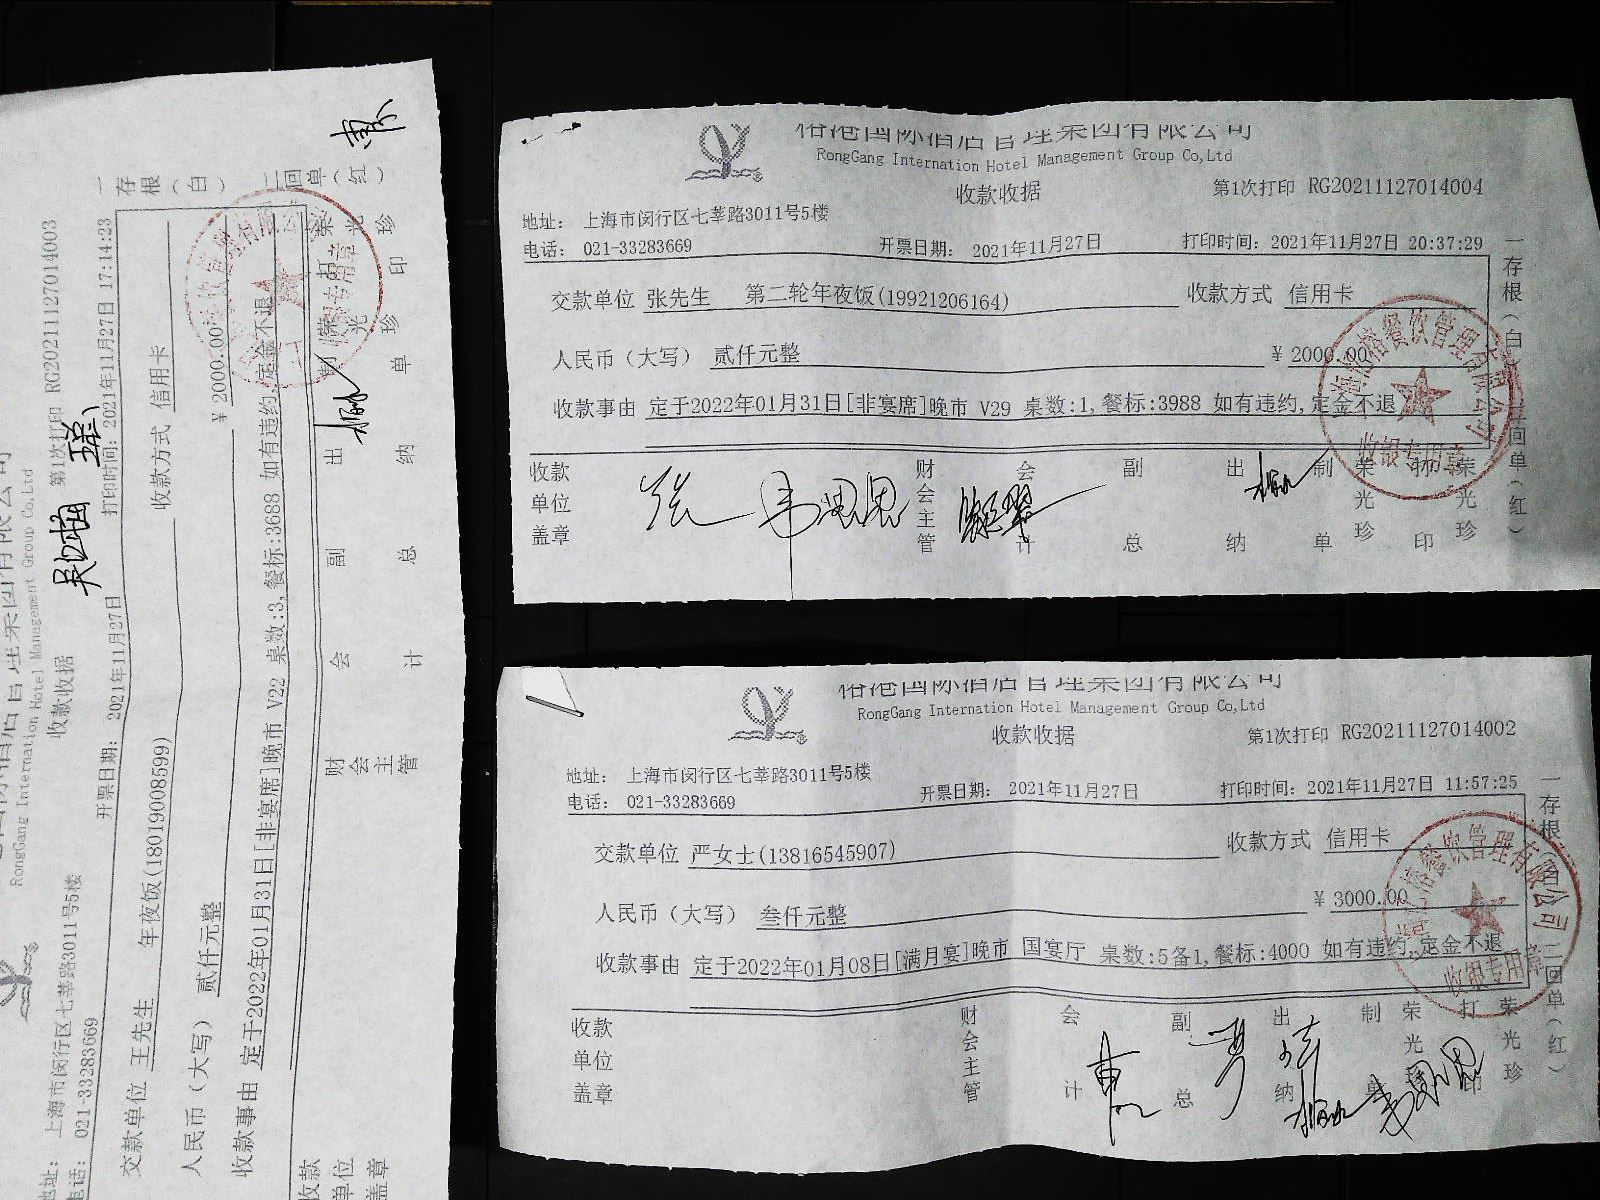 RongGang Internation Hotel Management Group Co,Ltd
收款收据
第1次打印 RG20211127014003
地址： 上海市闵行区七莘路3011号5楼
电话： 021-33283669
开票日期： 2021年11月27日
打印时间：2021年11月27日 17:14:23
交款单位 王先生 年夜饭(18019008599)
收款方式 信用卡
人民币（大写） 贰仟元整
￥ 2000.00
收款事由 定于2022年01月31日[非宴席]晚市 V22 桌数:3,餐标:3688 如有违约,定金不退
收款单位盖章
财会主管
会计
副总
出纳
荣光珍
打印
荣光珍
一存根（白） 二回单（红）
裕港国际酒店管理集团有限公司
RongGang Internation Hotel Management Group Co,Ltd
收款收据
第1次打印 RG20211127014004
地址： 上海市闵行区七莘路3011号5楼
电话： 021-33283669
开票日期： 2021年11月27日
打印时间：2021年11月27日 20:37:29
交款单位 张先生 第二轮年夜饭(19921206164)
收款方式 信用卡
人民币（大写） 贰仟元整
￥ 2000.00
收款事由 定于2022年01月31日[非宴席]晚市 V29 桌数:1,餐标:3988 如有违约,定金不退
收款单位盖章
财会主管
会计
副总
出纳
制单
荣光珍
打印
荣光珍
一存根（白） 二回单（红）
收银专用章
裕港国际酒店管理集团有限公司
RongGang Internation Hotel Management Group Co,Ltd
收款收据
第1次打印 RG20211127014002
地址： 上海市闵行区七莘路3011号5楼
电话： 021-33283669
开票日期： 2021年11月27日
打印时间：2021年11月27日 11:57:25
交款单位 严女士(13816545907)
收款方式 信用卡
人民币（大写） 叁仟元整
￥ 3000.00
收款事由 定于2022年01月08日[满月宴]晚市 国宴厅 桌数:5备1,餐标:4000 如有违约,定金不退
收款单位盖章
财会主管
会计
副总
出纳
制单
荣光珍
打印
荣光珍
一存根（白） 二回单（红）
收银专用章